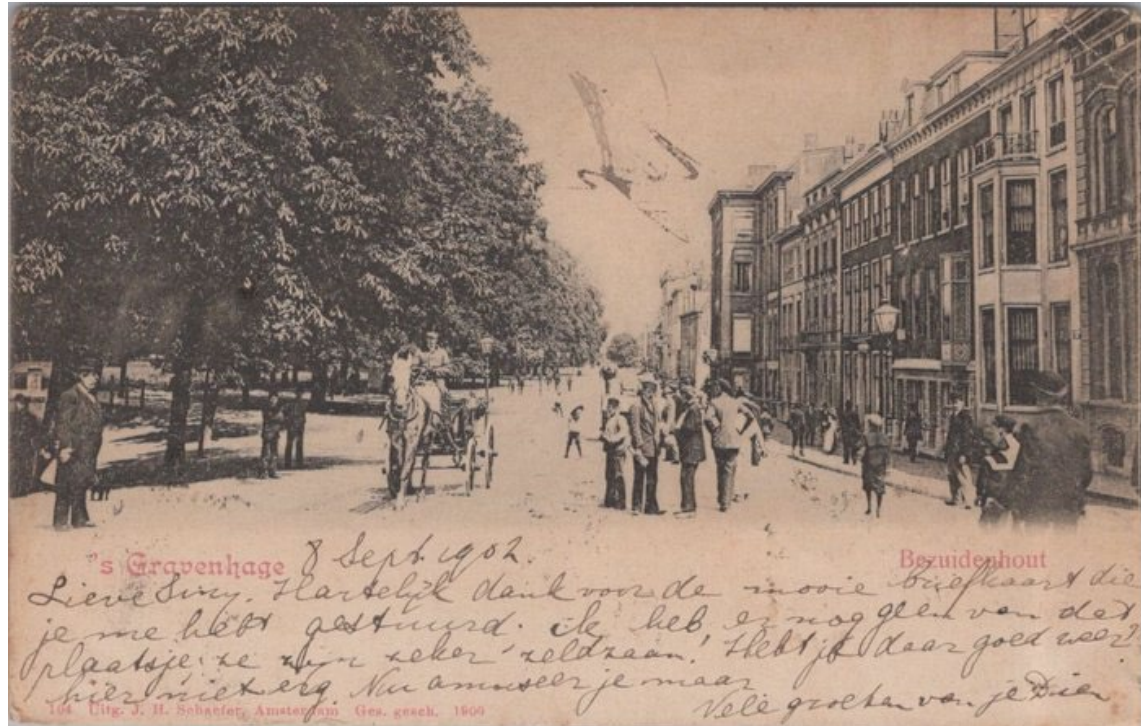 's Gravenhage
8 Sept. 1902.
Bezuidenhout
Lieve Siny. Hartelijk dank voor de mooie briefkaart die
je me hebt gestuurd. ik heb er nog geen van dat
plaatsje. ze zijn zeker zeldzaam! Hebt je daar goed weer?
hier niet erg. Nu amuseer je maar
Vele groeten van je Dien
104 Uitg. J. H. Schaefer, Amsterdam Ges. gesch. 1900